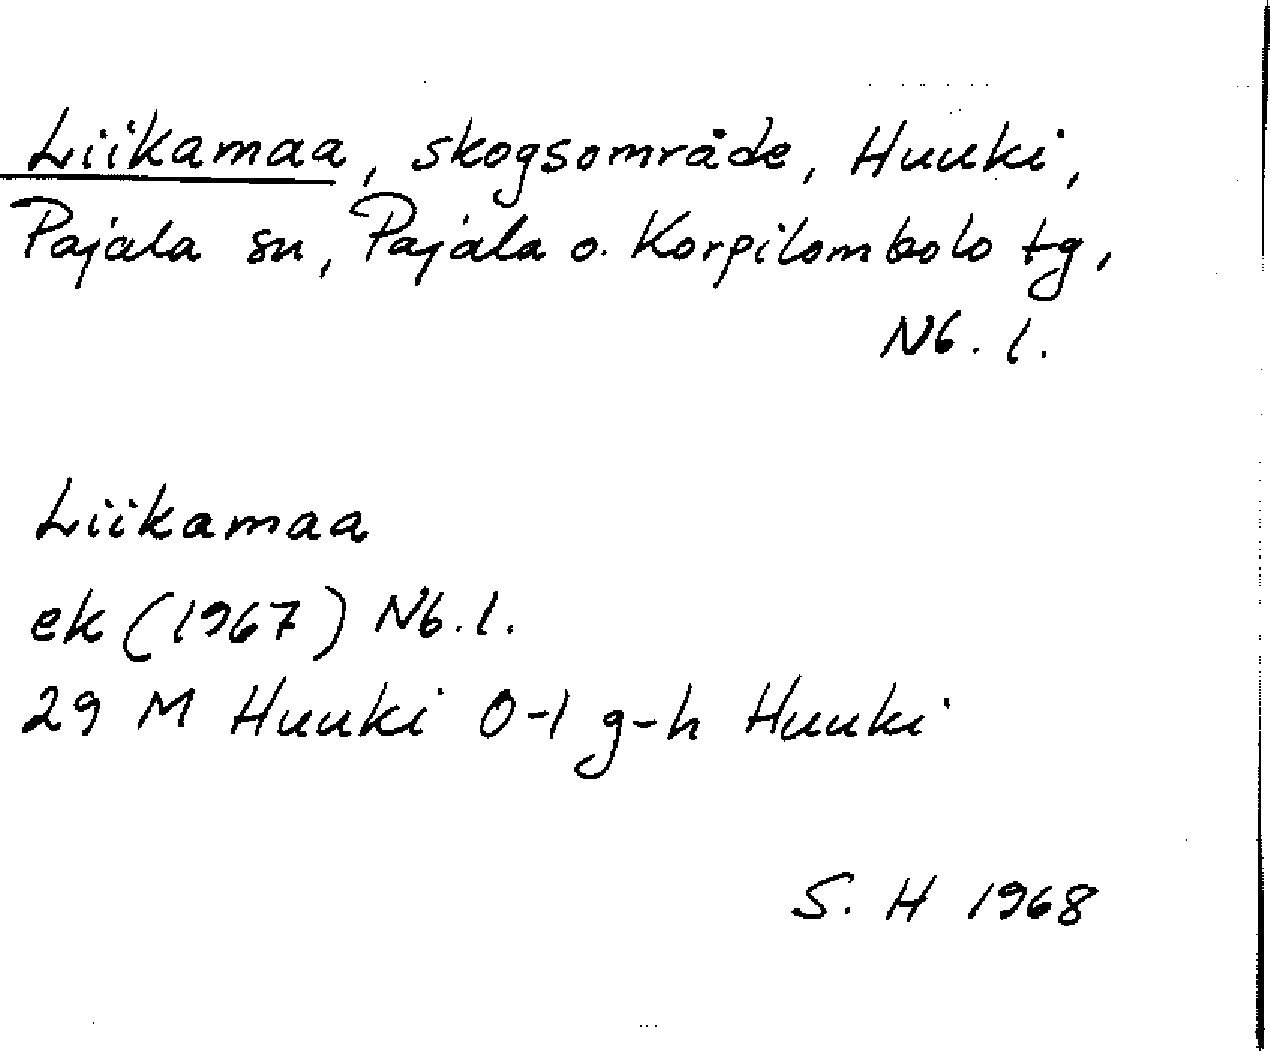 Liikamaa, skogsområde, Huuki,
Pajala sn, Pajala o. Korpilombolo tg,
Nb. l.
Liikamaa
ek (1967) Nb. l.
29 M Huuki 0-1 g-h Huuki
S. H 1968